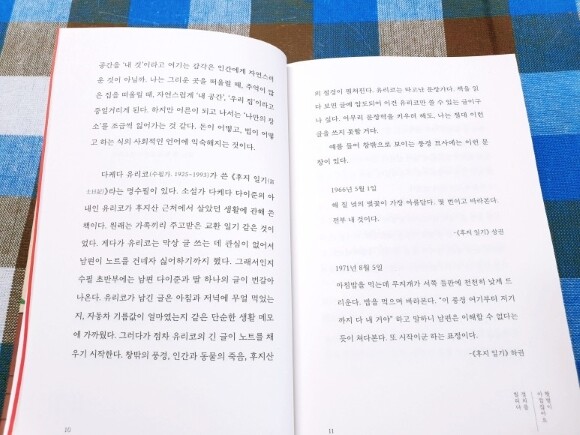 공간을 '내 것'이라고 여기는 감각은 인간에게 자연스러
운 것이 아닐까. 나는 그리운 곳을 떠올릴 때, 추억이 많
은 집을 떠올릴 때, 자연스럽게 '내 공간', '우리 집'이라고
중얼거리게 된다. 하지만 어른이 되고 나서는 '나만의 장
소'를 조금씩 잃어가는 것 같다. 돈이 어떻고, 법이 어떻
고 하는 식의 사회적인 언어에 익숙해지는 것이다.
다케다 유리코(수필가. 1925~1993)가 쓴 《후지 일기富
士日記》라는 명수필이 있다. 소설가 다케다 다이준의 아
내인 유리코가 후지산 근처에서 살았던 생활에 관해 쓴
책이다. 원래는 가족끼리 주고받은 교환 일기 같은 것이
었다. 게다가 유리코는 막상 글 쓰는 데 관심이 없어서
남편이 노트를 건네자 싫어하기까지 했다. 그래서인지
수필 초반부에는 남편 다이준과 딸 하나의 글이 번갈아
나온다. 유리코가 남긴 글은 아침과 저녁에 무얼 먹었는
지, 자동차 기름값이 얼마였는지 같은 단순한 생활 메모
에 가까웠다. 그러다가 점차 유리코의 긴 글이 노트를 채
우기 시작한다. 창밖의 풍경, 인간과 동물의 죽음, 후지산
10
의 절경이 펼쳐진다. 유리코는 타고난 문장가다. 책을 읽
다 보면 글에 압도되어 이건 유리코만 쓸 수 있는 글이구
나 싶다. 아무리 문장력을 키우려 해도, 나는 절대 이런
글을 쓰지 못할 거다.
예를 들어 창밖으로 보이는 풍경 묘사에는 이런 문
장이 있다.
1966년 5월 1일
해 질 녘의 빛깔이 가장 아름답다. 몇 번이고 바라본다.
전부 내 것이다.
-《후지 일기》 상권
1971년 8월 5일
아침밥을 먹는데 무지개가 서쪽 들판에 천천히 낮게 드
리운다. 밥을 먹으며 바라본다. "이 풍경 여기부터 저기
까지 다 내 거야" 하고 말하니 남편은 이해할 수 없다는
듯이 쳐다본다. 또 시작이군 하는 표정이다.
-《후지 일기》 하권
11